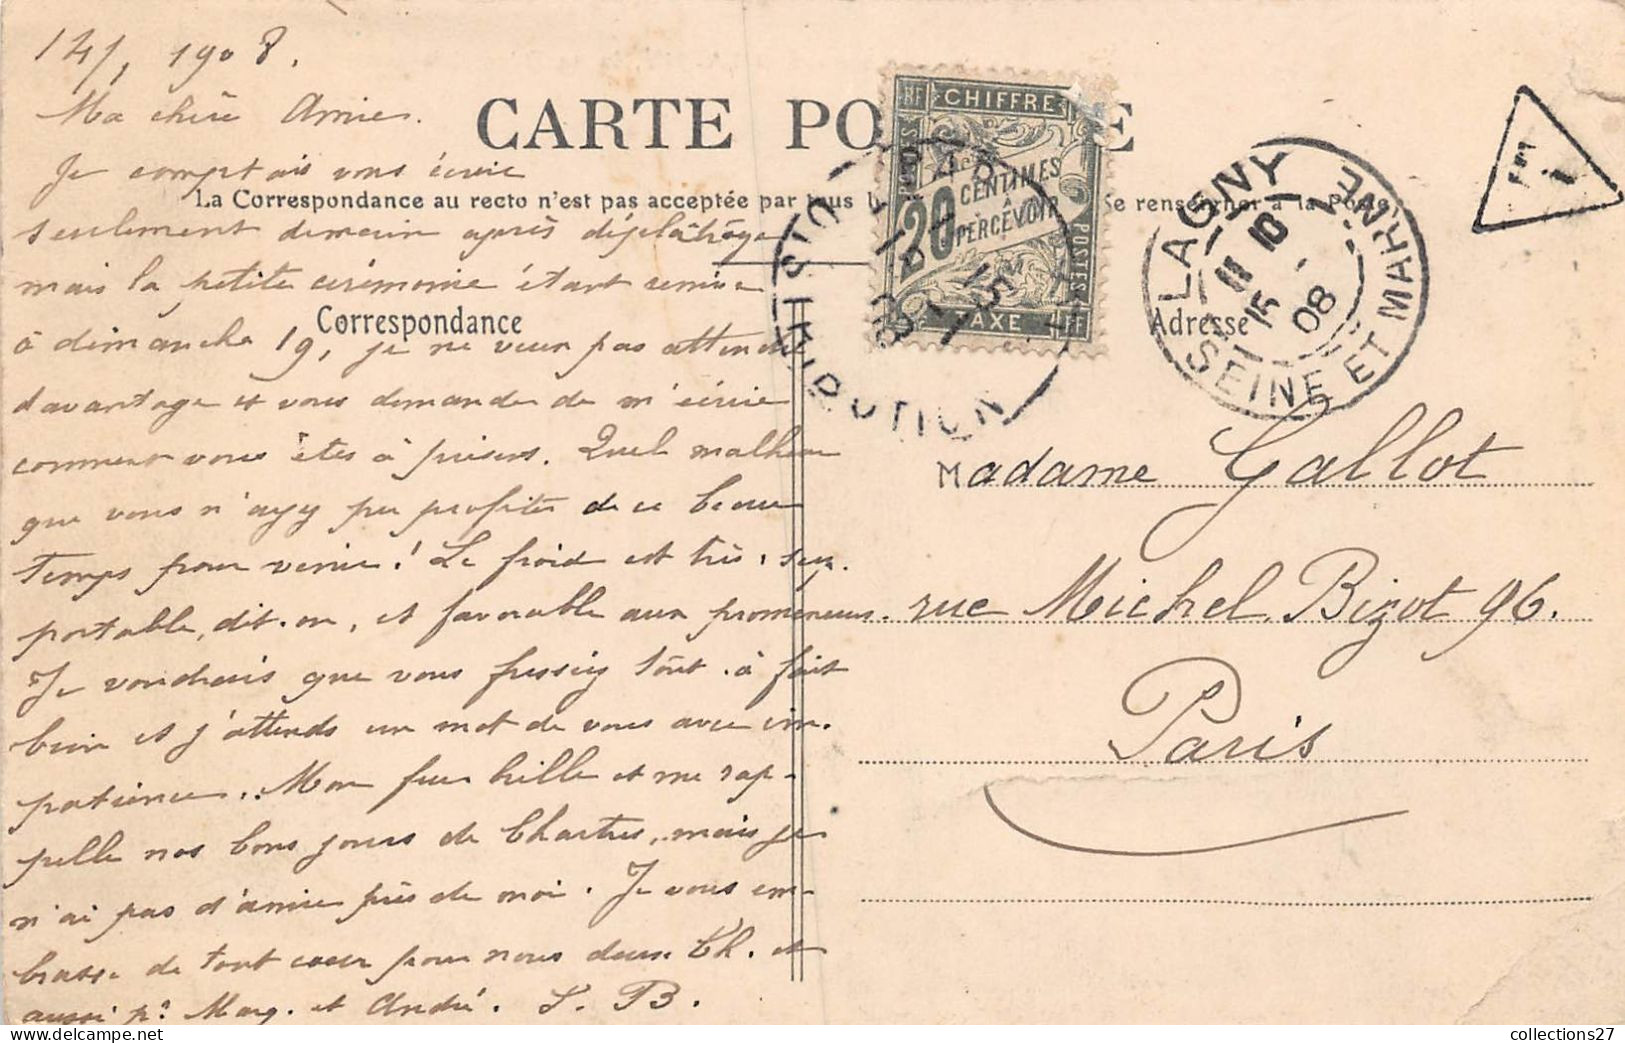 14/1 1908.
Ma chère Amie.
CARTE PO E
Je comptais vous écrire
La Correspondance au recto n'est pas acceptée par tous Se renseigner à la Poste
seulement demain après
mais la petite cérémonie étant remise
Correspondance
à dimanche 19, je ne veux pas attendre
davantage et vous demande de m'écrire
comment vous êtes à présent. Quel malheur
que vous n'ayez pu profiter de ce beau
temps pour venir! Le froid est très sup-
portable, dit-on, et favorable aux promeneurs.
Je voudrais que vous fussiez tout-à-fait
bien et j'attends un mot de vous avec im-
patience. Mon feu brille et me rap-
pelle nos bons jours de Chartres, mais je
n'ai pas d'amie près de moi. Je vous em-
brasse de tout cœur pour nous deux Ch. et
aussi pr Marg. et André. L. B.
RF CHIFFRE TAXE RF
POSTES
20 CENTIMES À PERCEVOIR
DISTRIBUTION
15
08
LAGNY
SEINE ET MARNE
11 10
15 1
08
T
Adresse
Madame Gallot
rue Michel Bizot 96.
Paris
collections27